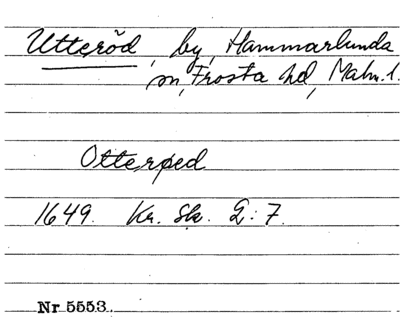 Utteröd, by, Hammarlunda
sn, Frosta hd, Malm. l.
Otterød
1649. Kr. Sk. 2:7.
Nr 5553.